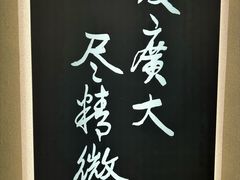 廣大
尽精微